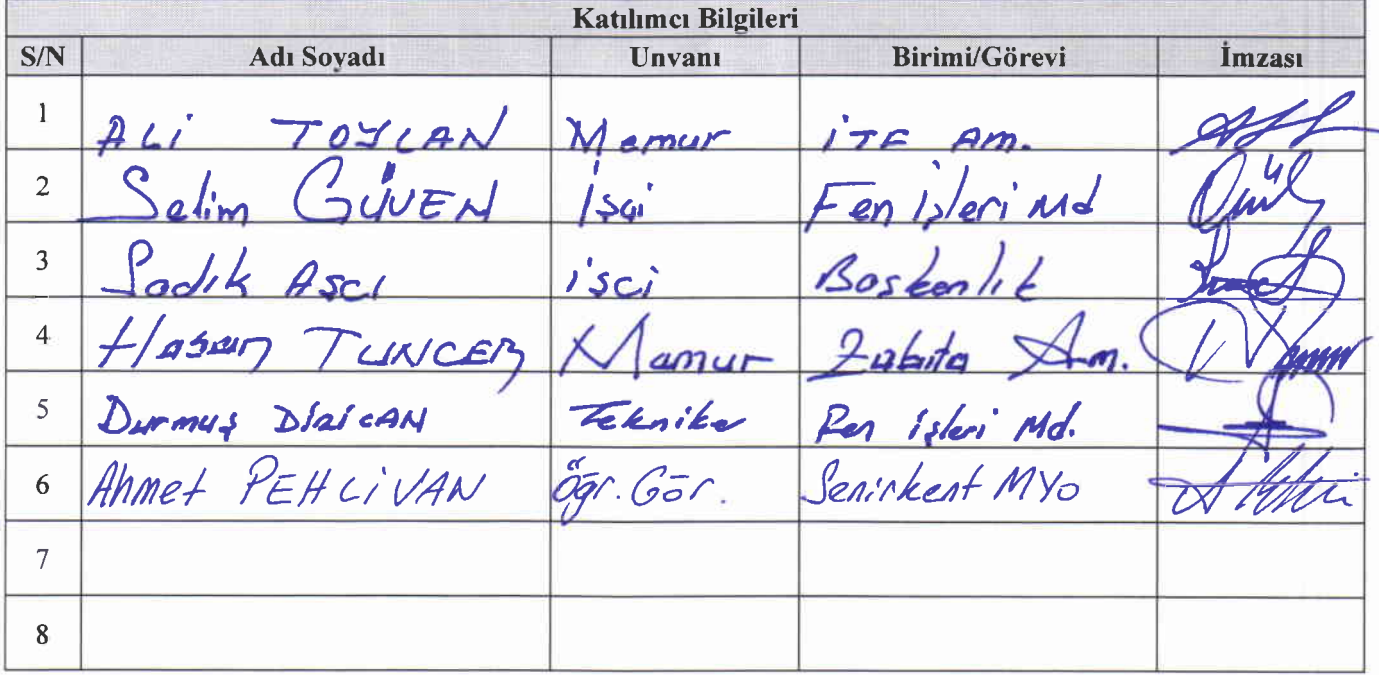 Katılımcı Bilgileri
S/N Adı Soyadı Unvanı Birimi/Görevi İmzası
1 ALi TOYLAN Memur iTF Am.
2 Selim GÜVEN İşçi Fen İşleri Md
3 Sadık Aşcı işci Başkanlık
4 Hasan TUNCER Mamur Zabıta Am.
5 Durmuş DİRİCAN Tekniker Fen işleri Md.
6 Ahmet PEHLİVAN Öğr. Gör. Senirkent MYO
7
8